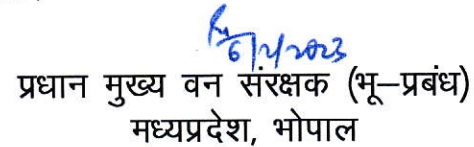 6/2/2023
प्रधान मुख्य वन संरक्षक (भू–प्रबंध)
मध्यप्रदेश, भोपाल